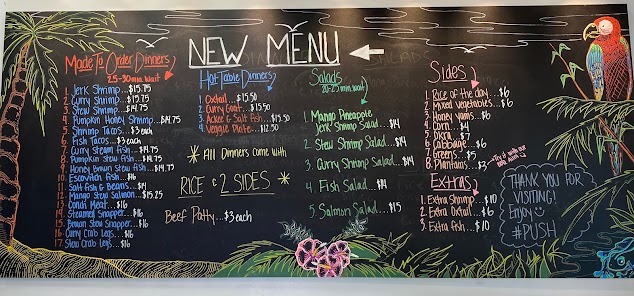 NEW MENU
Made To Order Dinners
25-30 min. wait
1. Jerk Shrimp...$15.75
2. Curry Shrimp...$15.75
3. Stew Shrimp...$14.75
4. Pumpkin Honey Shrimp...$14.75
5. Shrimp Tacos...$3 each
6. Fish Tacos...$3 each
7. Curry Steam Fish...$14.75
8. Pumpkin Stew Fish...$14.75
9. Honey Brown Stew Fish...$14.75
10. Escovitch Fish...$16
11. Salt Fish & Beans...$14
12. Mango Stew Salmon...$15.25
13. Conch Meat...$16
14. Steamed Snapper...$16
15. Brown Stew Snapper...$16
16. Curry Crab Legs...$16
17. Stew Crab Legs...$16
Hot Table Dinners
1. Oxtail...$15.50
2. Curry Goat...$15.50
3. Ackee & Salt Fish...$15.50
4. Veggie Plate...$12.50
* All Dinners come with *
RICE & 2 SIDES
Beef Patty...$3 each
Salads
20-25 min. wait
1. Mango Pineapple
Jerk Shrimp Salad...$14
2. Stew Shrimp Salad...$14
3. Curry Shrimp Salad...$14
4. Fish Salad...$14
5. Salmon Salad...$15
Sides
1. Rice of the day...$6
2. Mixed Vegetables...$6
3. Honey Yams...$6
4. Corn...$4
5. Okra...$7
6. Cabbage...$6
7. Greens...$5
8. Plantains...$3
Try it with our
Extras
1. Extra Shrimp...$10
2. Extra Oxtail...$6
3. Extra Fish...$10
THANK YOU FOR
VISITING!
Enjoy
#PUSH